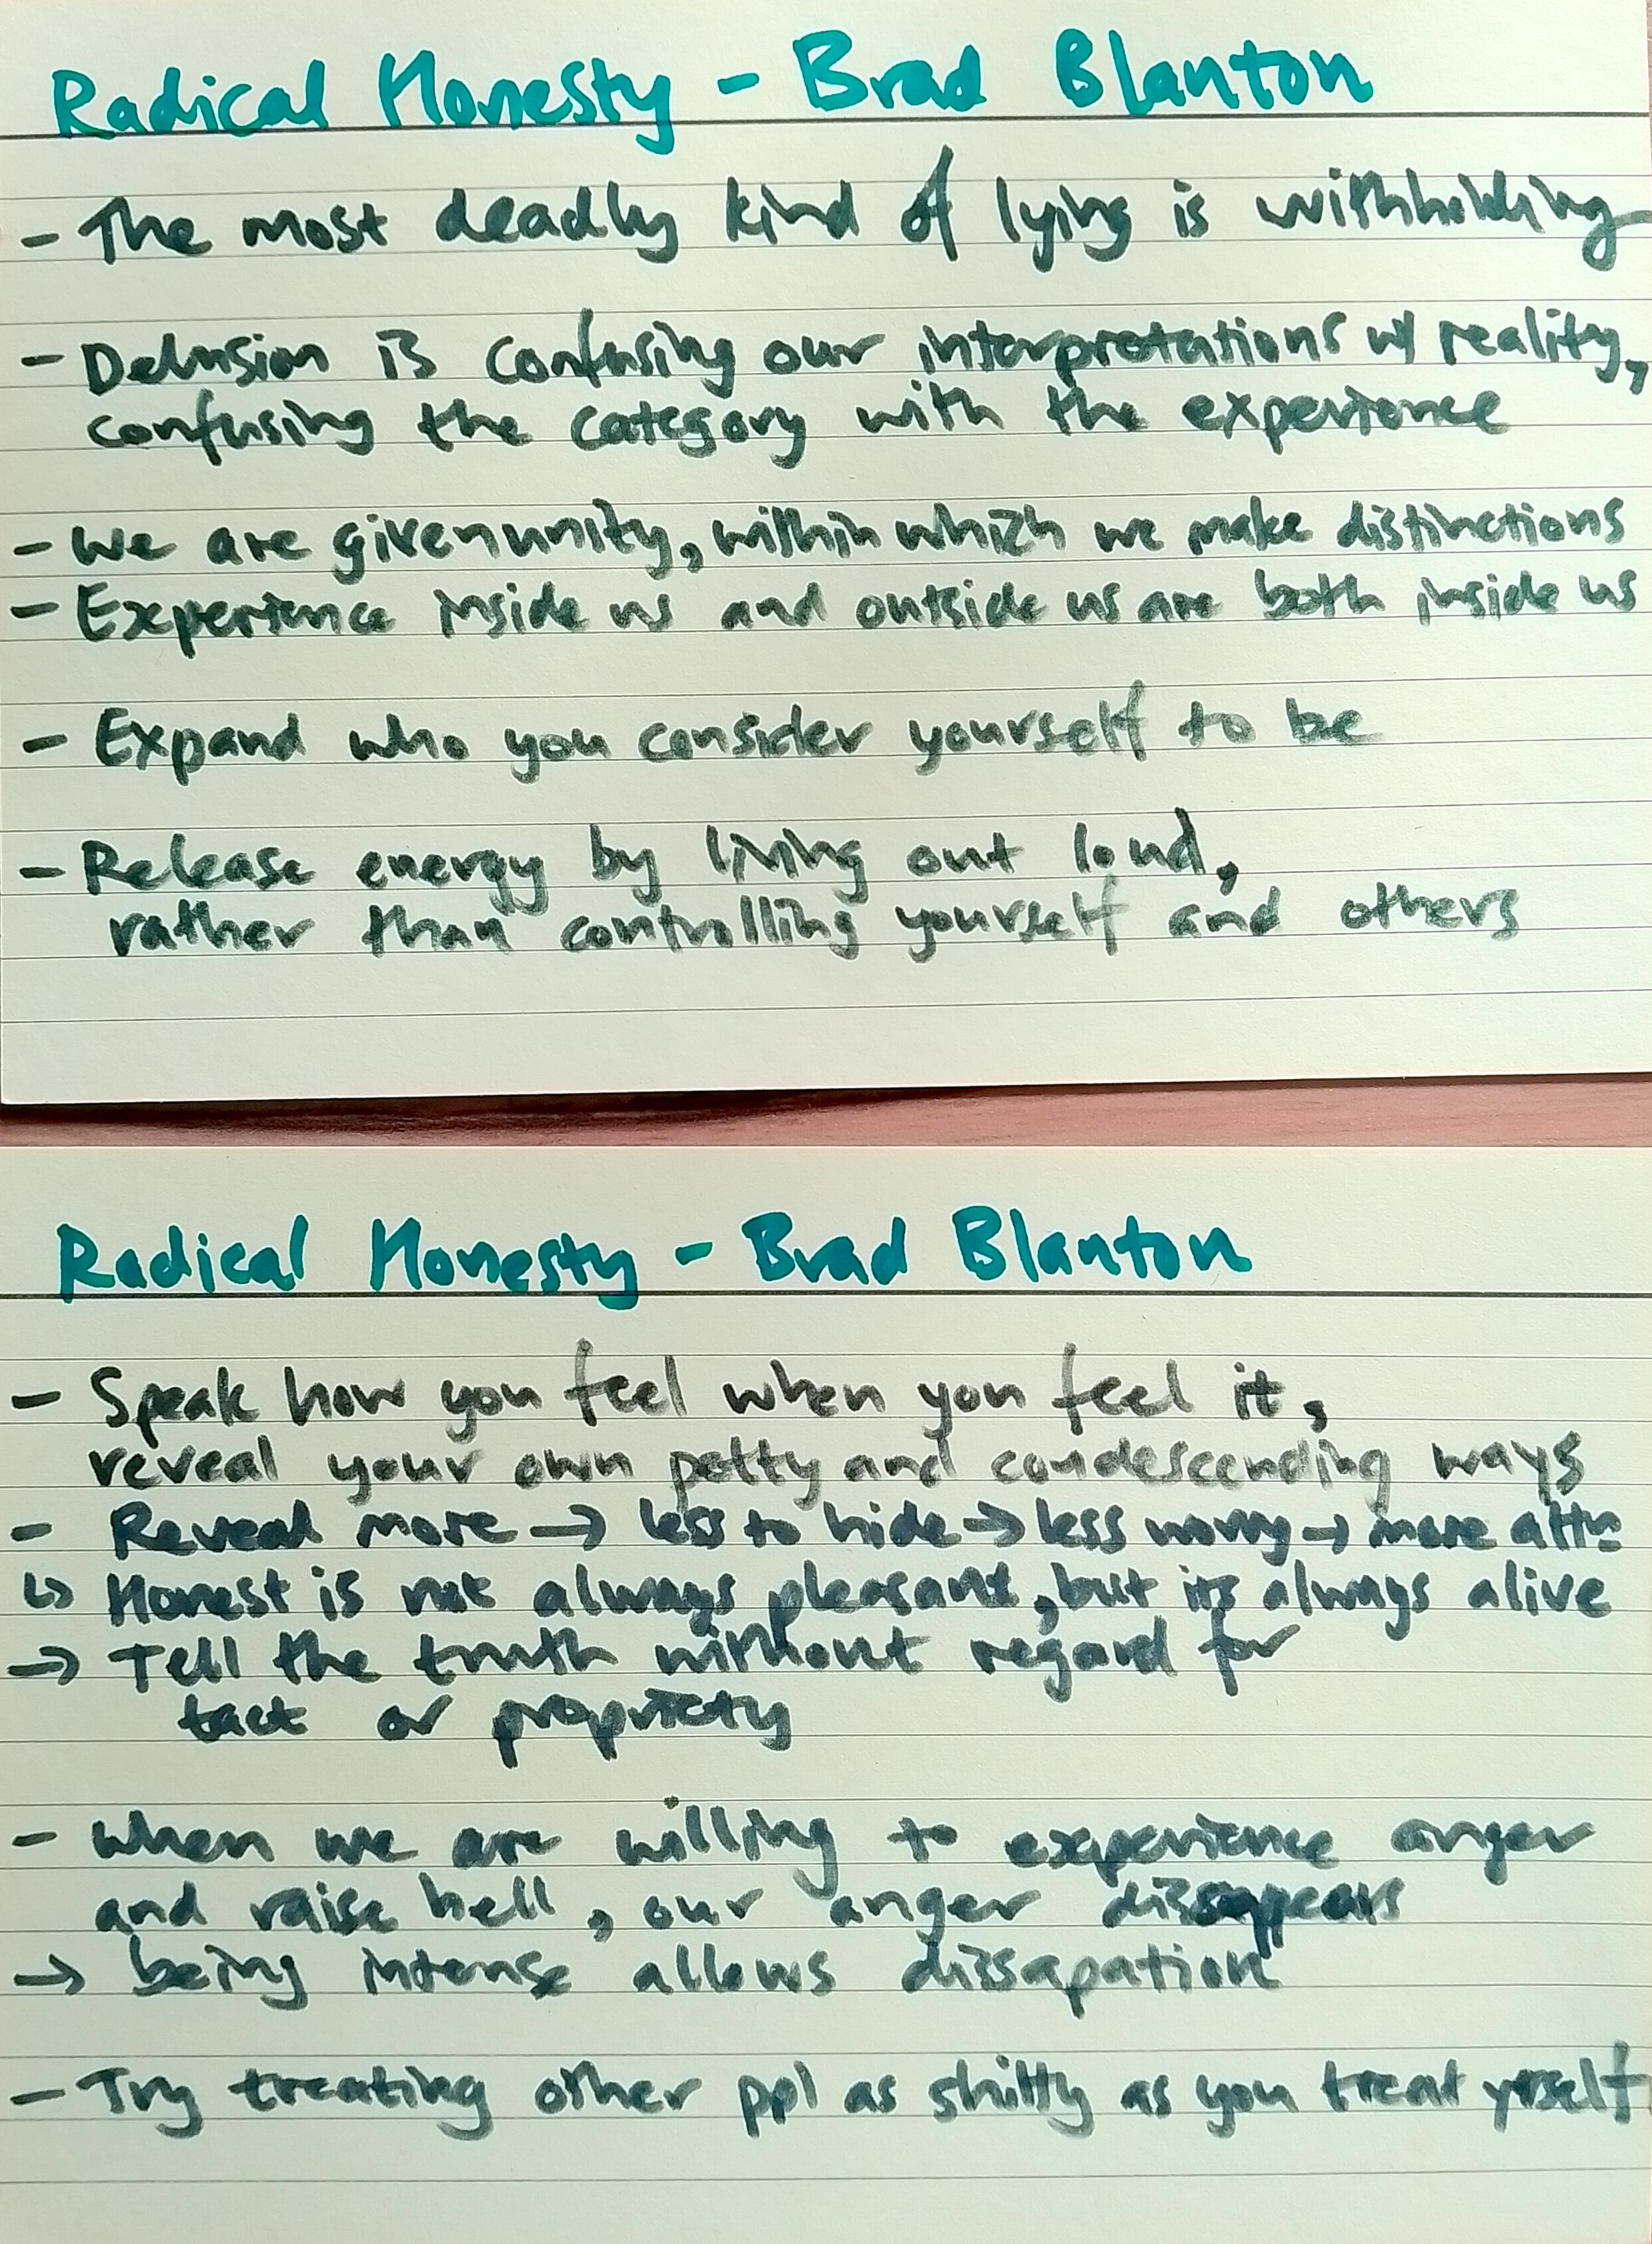 Radical Honesty - Brad Blanton
- The most deadly kind of lying is withholding
- Delusion is confusing our interpretations w/ reality,
confusing the category with the experience
- We are given unity, within which we make distinctions
- Experience inside us and outside us are both inside us
- Expand who you consider yourself to be
- Release energy by living out loud,
rather than controlling yourself and others
Radical Honesty - Brad Blanton
- Speak how you feel when you feel it,
reveal your own petty and condescending ways
- Reveal more → less to hide → less worry → more
↳ Honest is not always pleasant, but its always alive
→ Tell the truth without regard for
tact or propriety
- When we are willing to experience anger
and raise hell, our anger dissappears
→ being intense allows dissapation
- Try treating other ppl as shitty as you treat yrself